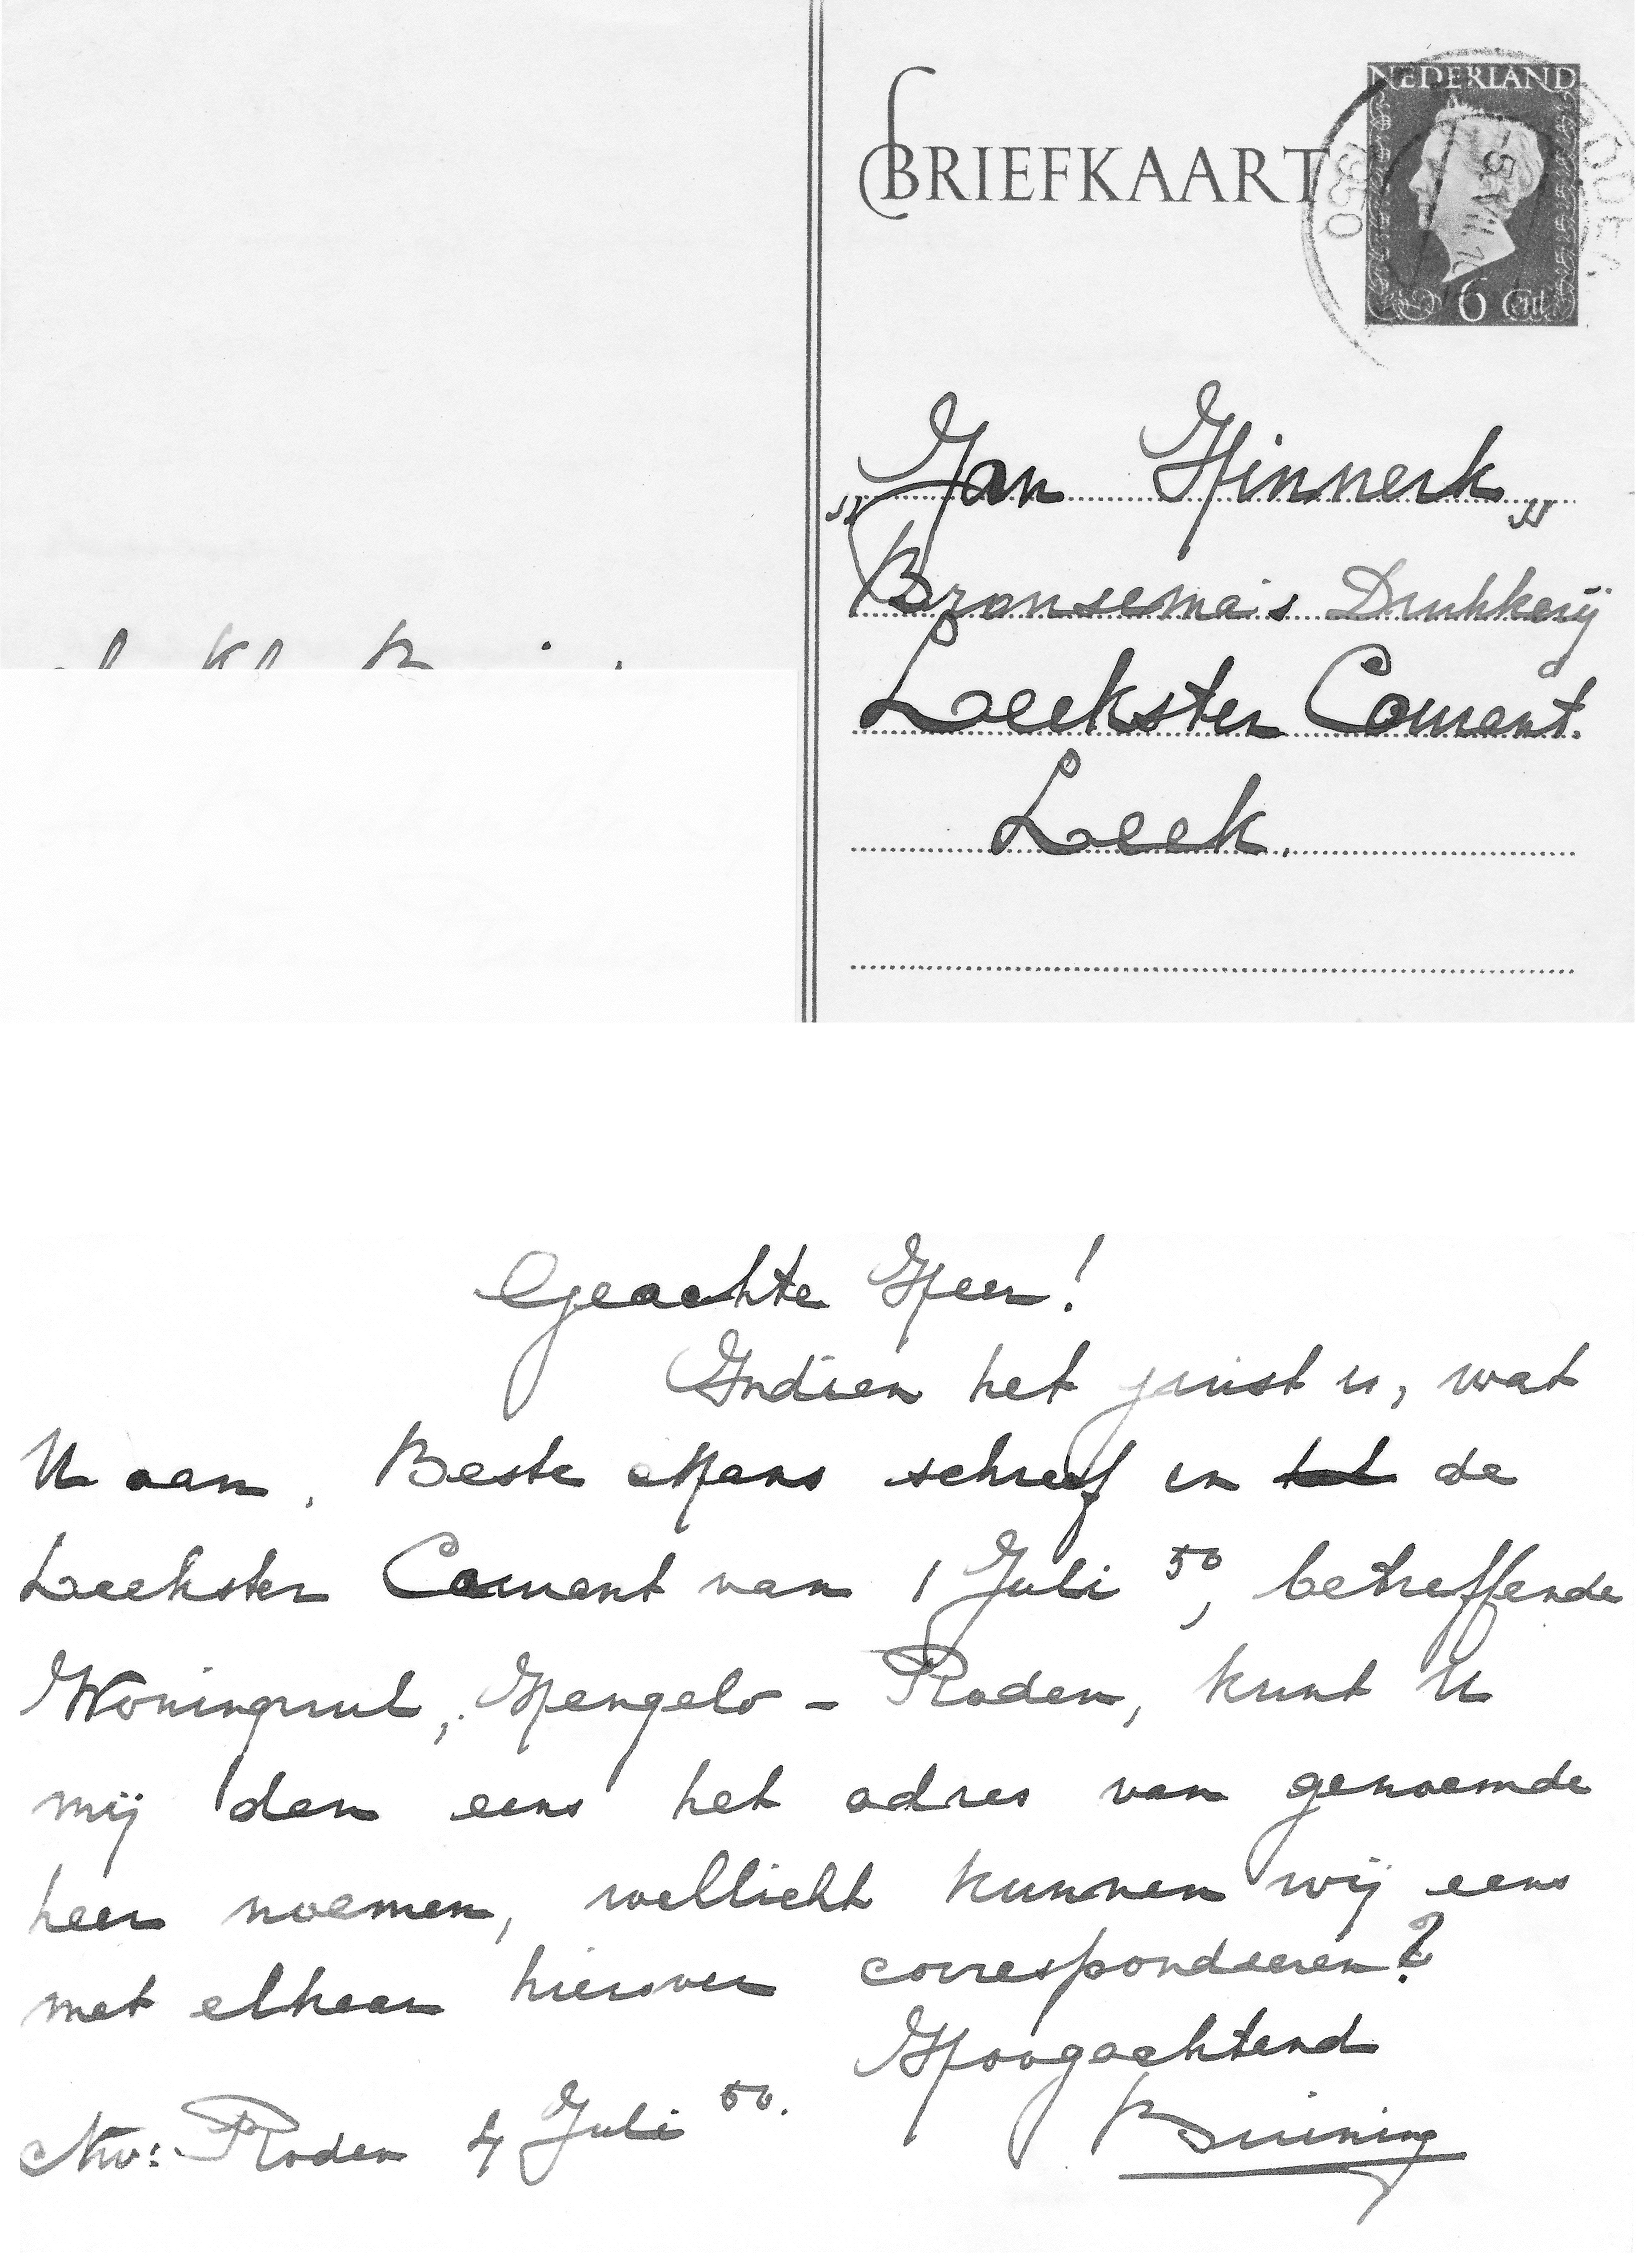 BRIEFKAART
NEDERLAND
6 Cent
RODEN
1950
„Jan Hinnerk„
Bronsema's Drukkerij
Leekster Courant.
Leek.
Geachte Heer!
Indien het juist is, wat
U aan, Beste Mans schreef in de
Leekster Courant van 1 Juli 50, betreffende
Woningruil, Hengelo - Roden, kunt U
mij dan eens het adres van genoemde
heer noemen, wellicht kunnen wij eens
met elkaar hierover correspondeeren?
Hoogachtend
Nw: Roden 4 Juli 50.
Buining